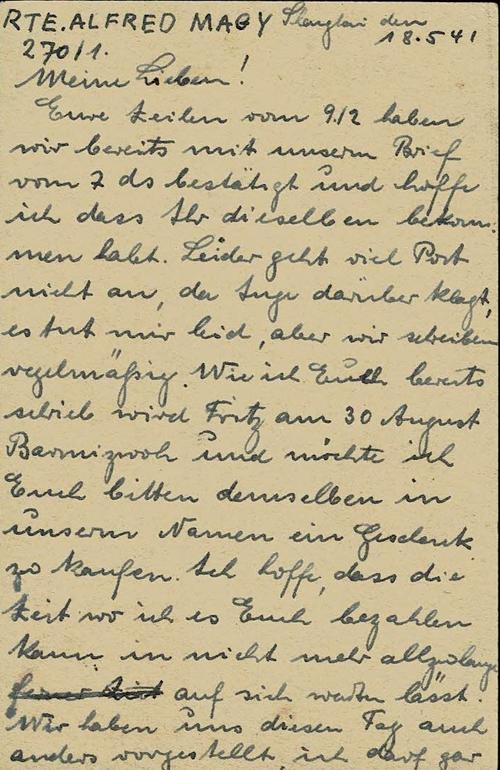 RTE. ALFRED MAGY Shanghai den
270/1. 18.5 41
Meine Lieben!
Eure Zeilen vom 9./2 haben
wir bereits mit unserm Brief
vom 7 ds bestätigt und hoffe
ich dass Ihr dieselben bekom-
men habt. Leider geht viel Post
nicht an, da Inge darüber klagt,
es tut mir leid, aber wir schreiben
regelmäßig. Wie ich Euch bereits
schrieb wird Fritz am 30 August
Barmizwoh und möchte ich
Euch bitten demselben in
unserm Namen ein Geschenk
zu kaufen. Ich hoffe, dass die
Zeit wo ich es Euch bezahlen
kann in nicht mehr allzulange
auf sich warten lässt.
Wir haben uns diesen Tag auch
anders vorgestellt, ich darf gar